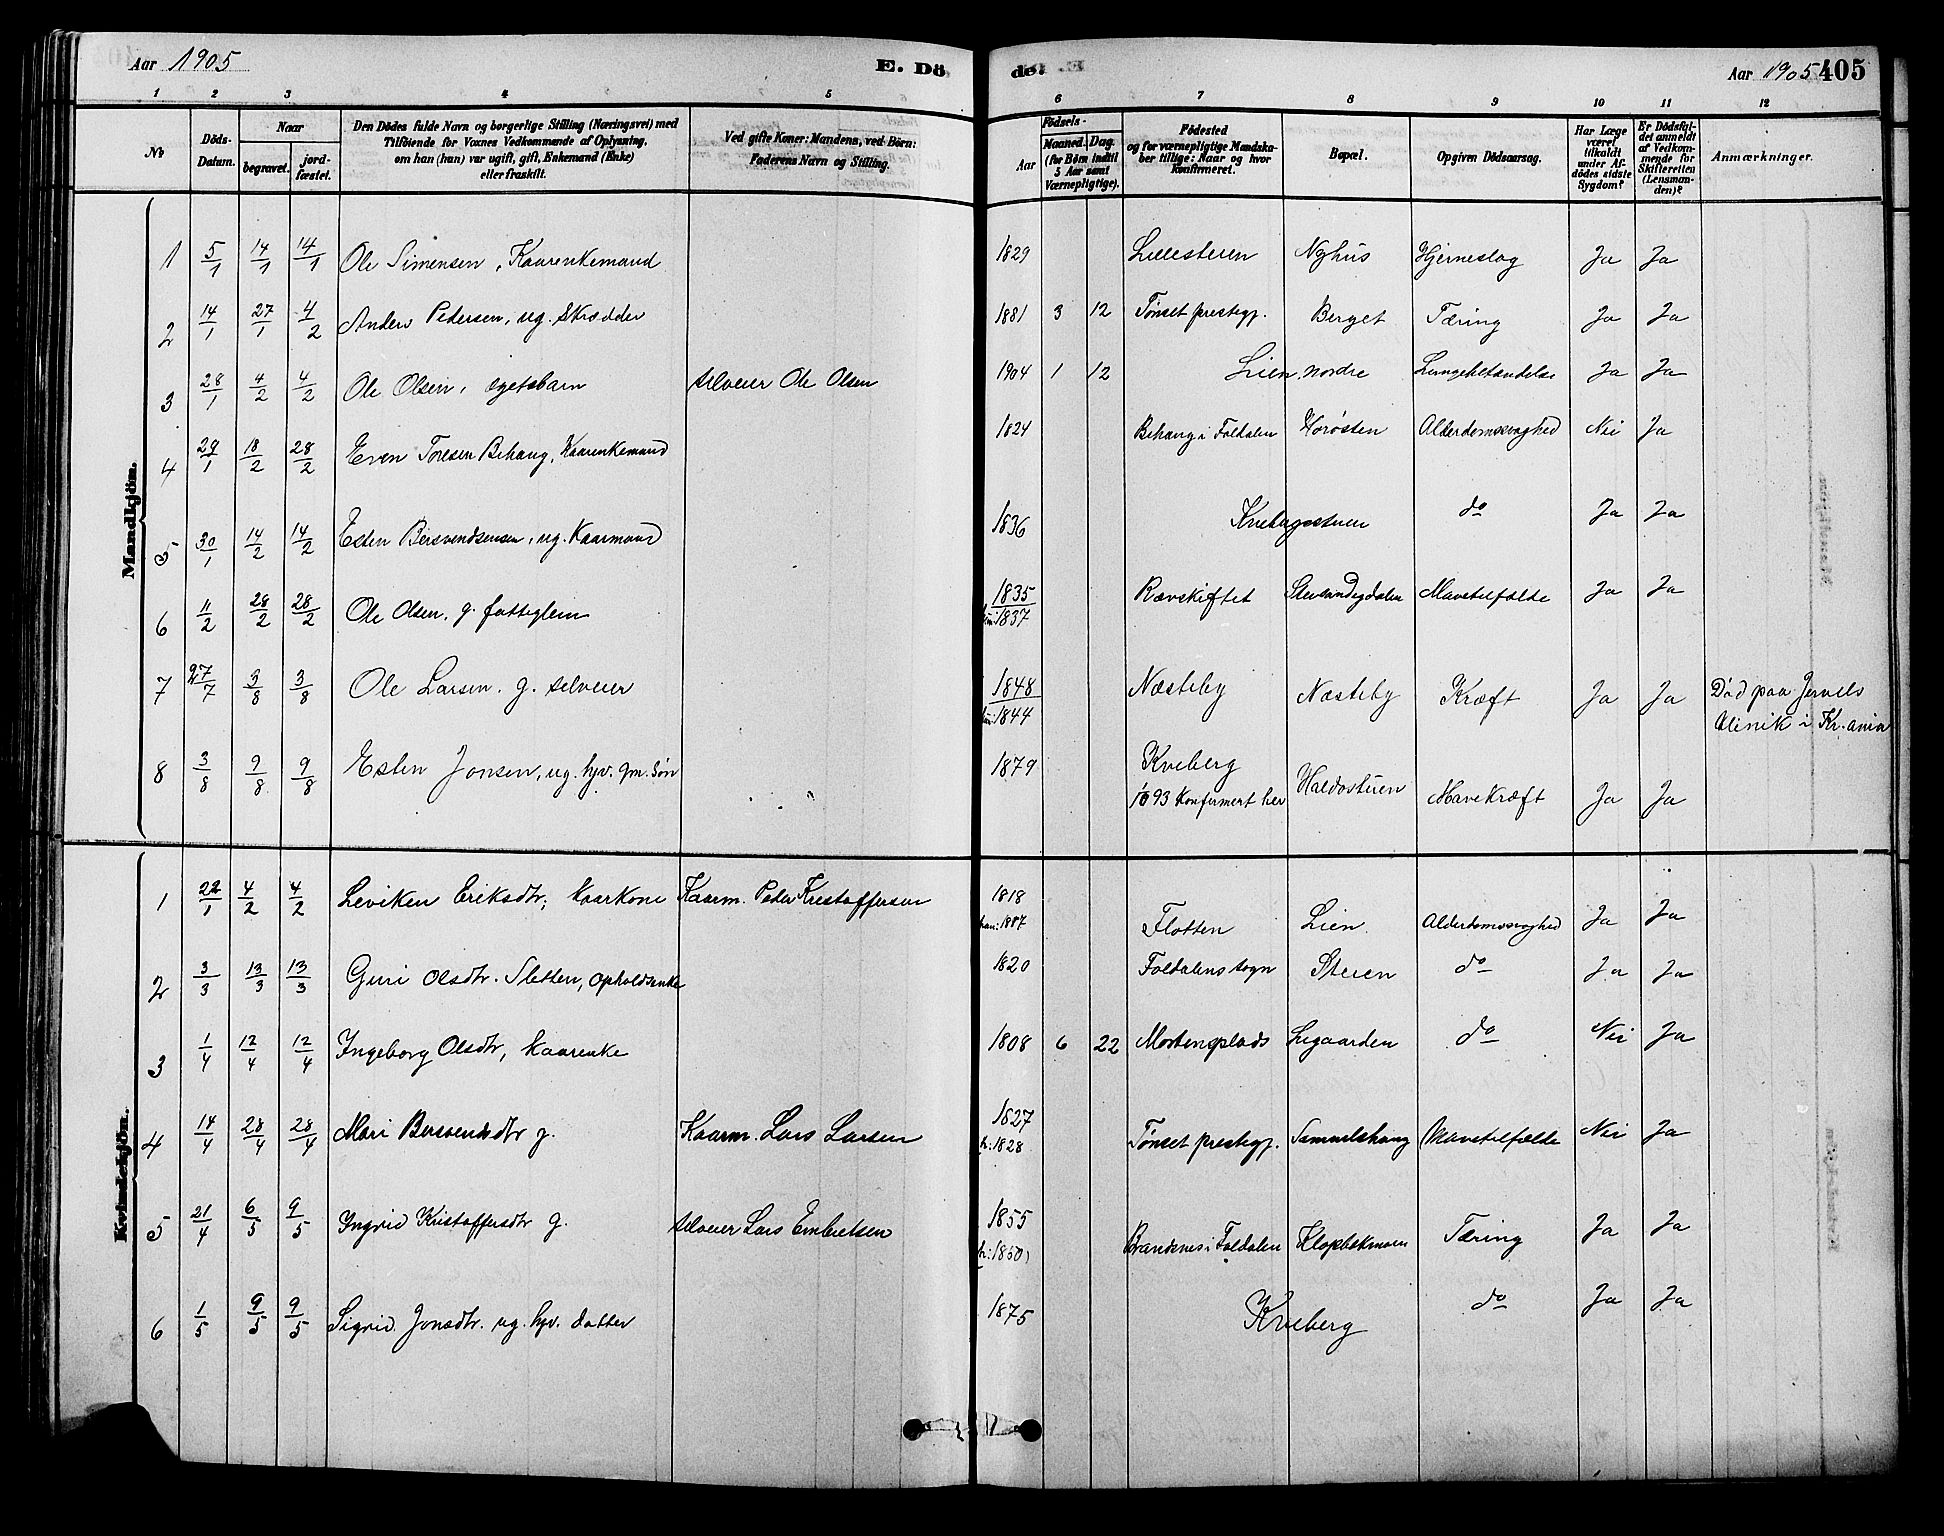 Aar 1905
E. Dö
de.
Aar 1905 405
1 2 3 4 5 6 7 8 9 10 11 12
No
Döds-Datum.
Naar
begravet.
jord-fæstet.
Den Dödes fulde Navn og borgerlige Stilling (Næringsvei) med
Tilföiende for Voxnes Vedkommende af Oplysning,
om han (hun) var ugift, gift, Enkemand (Enke)
eller fraskilt.
Ved gifte Koner: Mandens, ved Börn:
Faderens Navn og Stilling.
Födsels-
Aar
Maaned. Dag.
(for Börn indtil
5 Aar samt
Værnepligtige).
Födested
og for værnepligtige Mandska-
ber tillige: Naar og hvor
konfirmeret.
Bopæl.
Opgiven Dödsaarsag.
Har Læge
været
tilkaldt
under Af-
dödes sidste
Sygdom?
Er Dödsfal-
det anmeldt
af Vedkom-
mende for
Skifteretten
(Lensman-
den)?
Anmærkninger.
Mandkjön.
1 5/1 14/1 14/1 Ole Simensen, Kaarenkemand 1829 Lillesteien Nyhus Hjerneslag Ja Ja
2 14/1 27/1 4/2 Anders Pedersen, ug. Skrædder 1881 3 12 Tønset prestegj. Berget Tæring Ja Ja
3 28/1 4/2 4/2 Ole Olsen, ægtebarn selveier Ole Olsen 1904 1 12 Lien nordre Lungebetændelse Ja Ja
4 29/1 18/2 28/2 Even Toresen Behaug, Kaarenkemand 1824 Behaug i Foldalen Horøsten Alderdomssvaghed Nei Ja
5 30/1 14/2 14/2 Esten Bersvendsensen, ug. Kaarmand 1836 Kvebergstuen do Ja Ja
6 11/2 28/2 28/2 Ole Olsen. g. fattiglem 1835 Rævskiftet Mavetilfælde Ja Ja
1837
7 27/7 3/8 3/8 Ole Larsen. g. selveier 1848 Næsteby Næsteby Kræft Ja Ja Død paa Jervels
1844 klinik i Kr.ania
8 3/8 9/8 9/8 Esten Jonsen, ug. hjv. gm. søn 1879 Kveberg Haldostuen Mavekræft Ja Ja
1893 Konfirmert her
Kvindekjön.
1 22/1 4/2 4/2 Leviken Eriksdtr, kaarkone Kaarm. Peder Kristoffersen 1818 Flotten Lien Alderdomssvaghed Ja Ja
han: 1887
2 3/3 13/3 13/3 Guri Olsdtr. Sletten, opholdsenke 1820 Foldalens sogn Steien do Ja Ja
3 1/4 12/4 12/4 Ingeborg Olsdtr, kaarenke 1808 6 22 Mortensplads Ligaarden do Nei Ja
4 14/4 28/4 28/4 Mari Bersvendsdtr g. Kaarm. Lars Larsen 1827 Tønset prestegj. Samuelshaug Mavetilfælde Nei Ja
h: 1828
5 21/4 6/5 9/5 Ingrid Kristoffersdtr g. selveier Lars Embretsen 1855 Brandsnes i Foldalen Klopbekmoen Tæring Ja Ja
h: 1850
6 1/5 9/5 9/5 Sigrid Jonsdtr. ug. hjv. datter 1875 Kveberg do Ja Ja